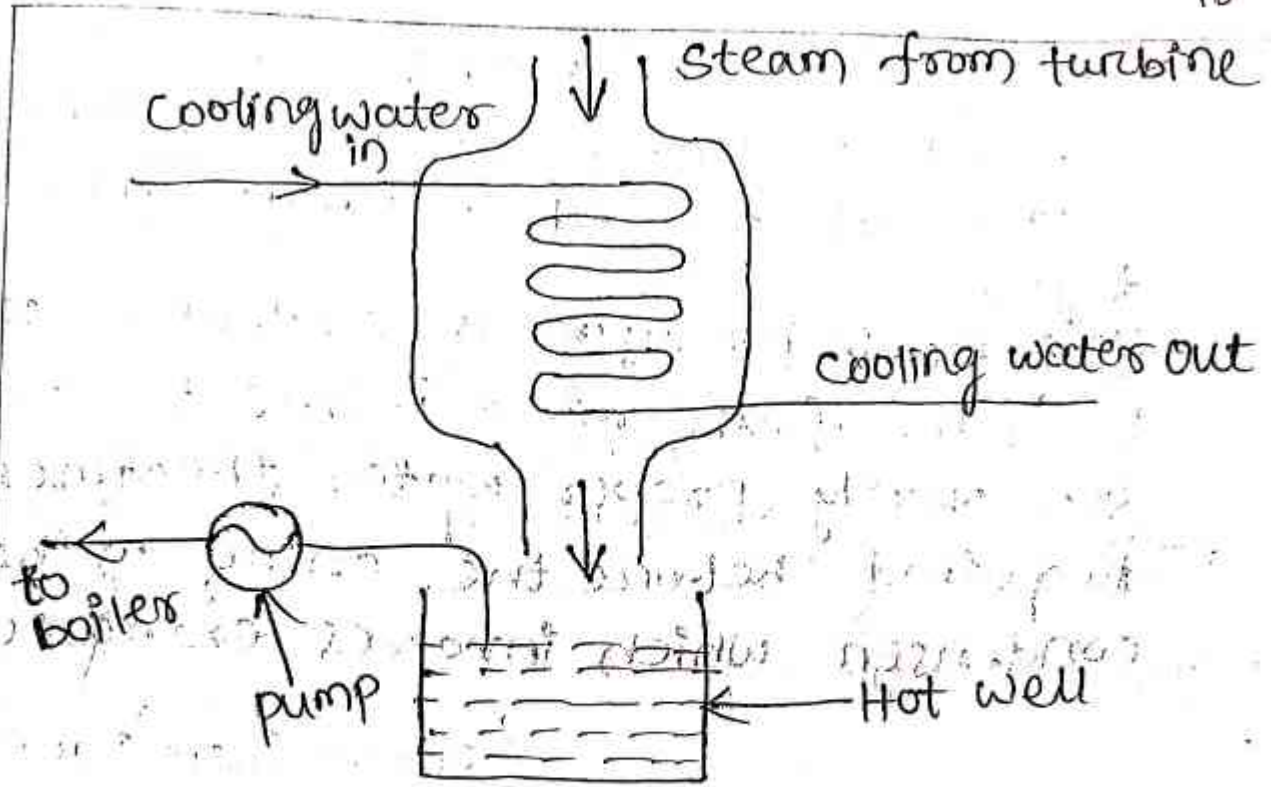 Steam from turbine
Cooling water
in
Cooling water out
to
boiler
pump
Hot well